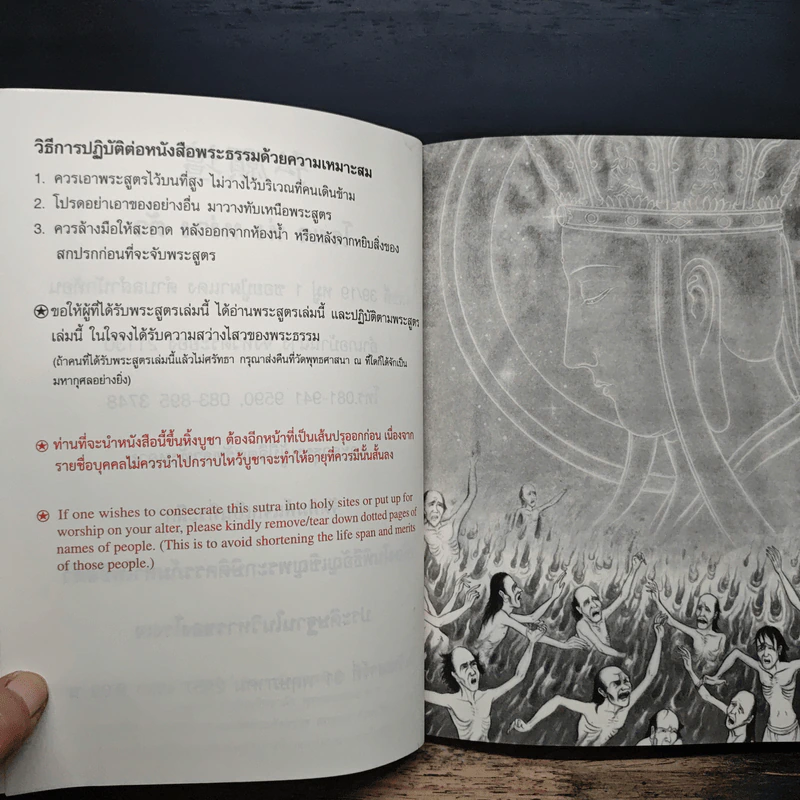 วิธีการปฏิบัติต่อหนังสือพระธรรมด้วยความเหมาะสม
1. ควรเอาพระสูตรไว้บนที่สูง ไม่วางไว้บริเวณที่คนเดินข้าม
2. โปรดอย่าเอาของอย่างอื่น มาวางทับเหนือพระสูตร
3. ควรล้างมือให้สะอาด หลังออกจากห้องน้ำ หรือหลังจากหยิบสิ่งของ
สกปรกก่อนที่จะจับพระสูตร
ขอให้ผู้ที่ได้รับพระสูตรเล่มนี้ ได้อ่านพระสูตรเล่มนี้ และปฏิบัติตามพระสูตร
เล่มนี้ ในใจจงได้รับความสว่างไสวของพระธรรม
(ถ้าคนที่ได้รับพระสูตรเล่มนี้แล้วไม่ศรัทธา กรุณาส่งคืนที่วัดพุทธศาสนา ณ ที่ใดก็ได้จักเป็น
มหากุศลอย่างยิ่ง)
ท่านที่จะนำหนังสือนี้ขึ้นหิ้งบูชา ต้องฉีกหน้าที่เป็นเส้นปรุออกก่อน เนื่องจาก
รายชื่อบุคคลไม่ควรนำไปกราบไหว้บูชาจะทำให้อายุที่ควรมีนั้นสั้นลง
If one wishes to consecrate this sutra into holy sites or put up for
worship on your alter, please kindly remove/tear down dotted pages of
names of people. (This is to avoid shortening the life span and merits
of those people.)